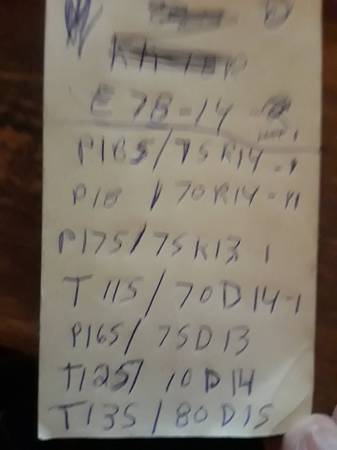 E 78-14
P185/75R14-1
P18 / 70R14-11
P175/75R13 1
T115/70D14-1
P165/75D13
T125/10D14
T135/80D15